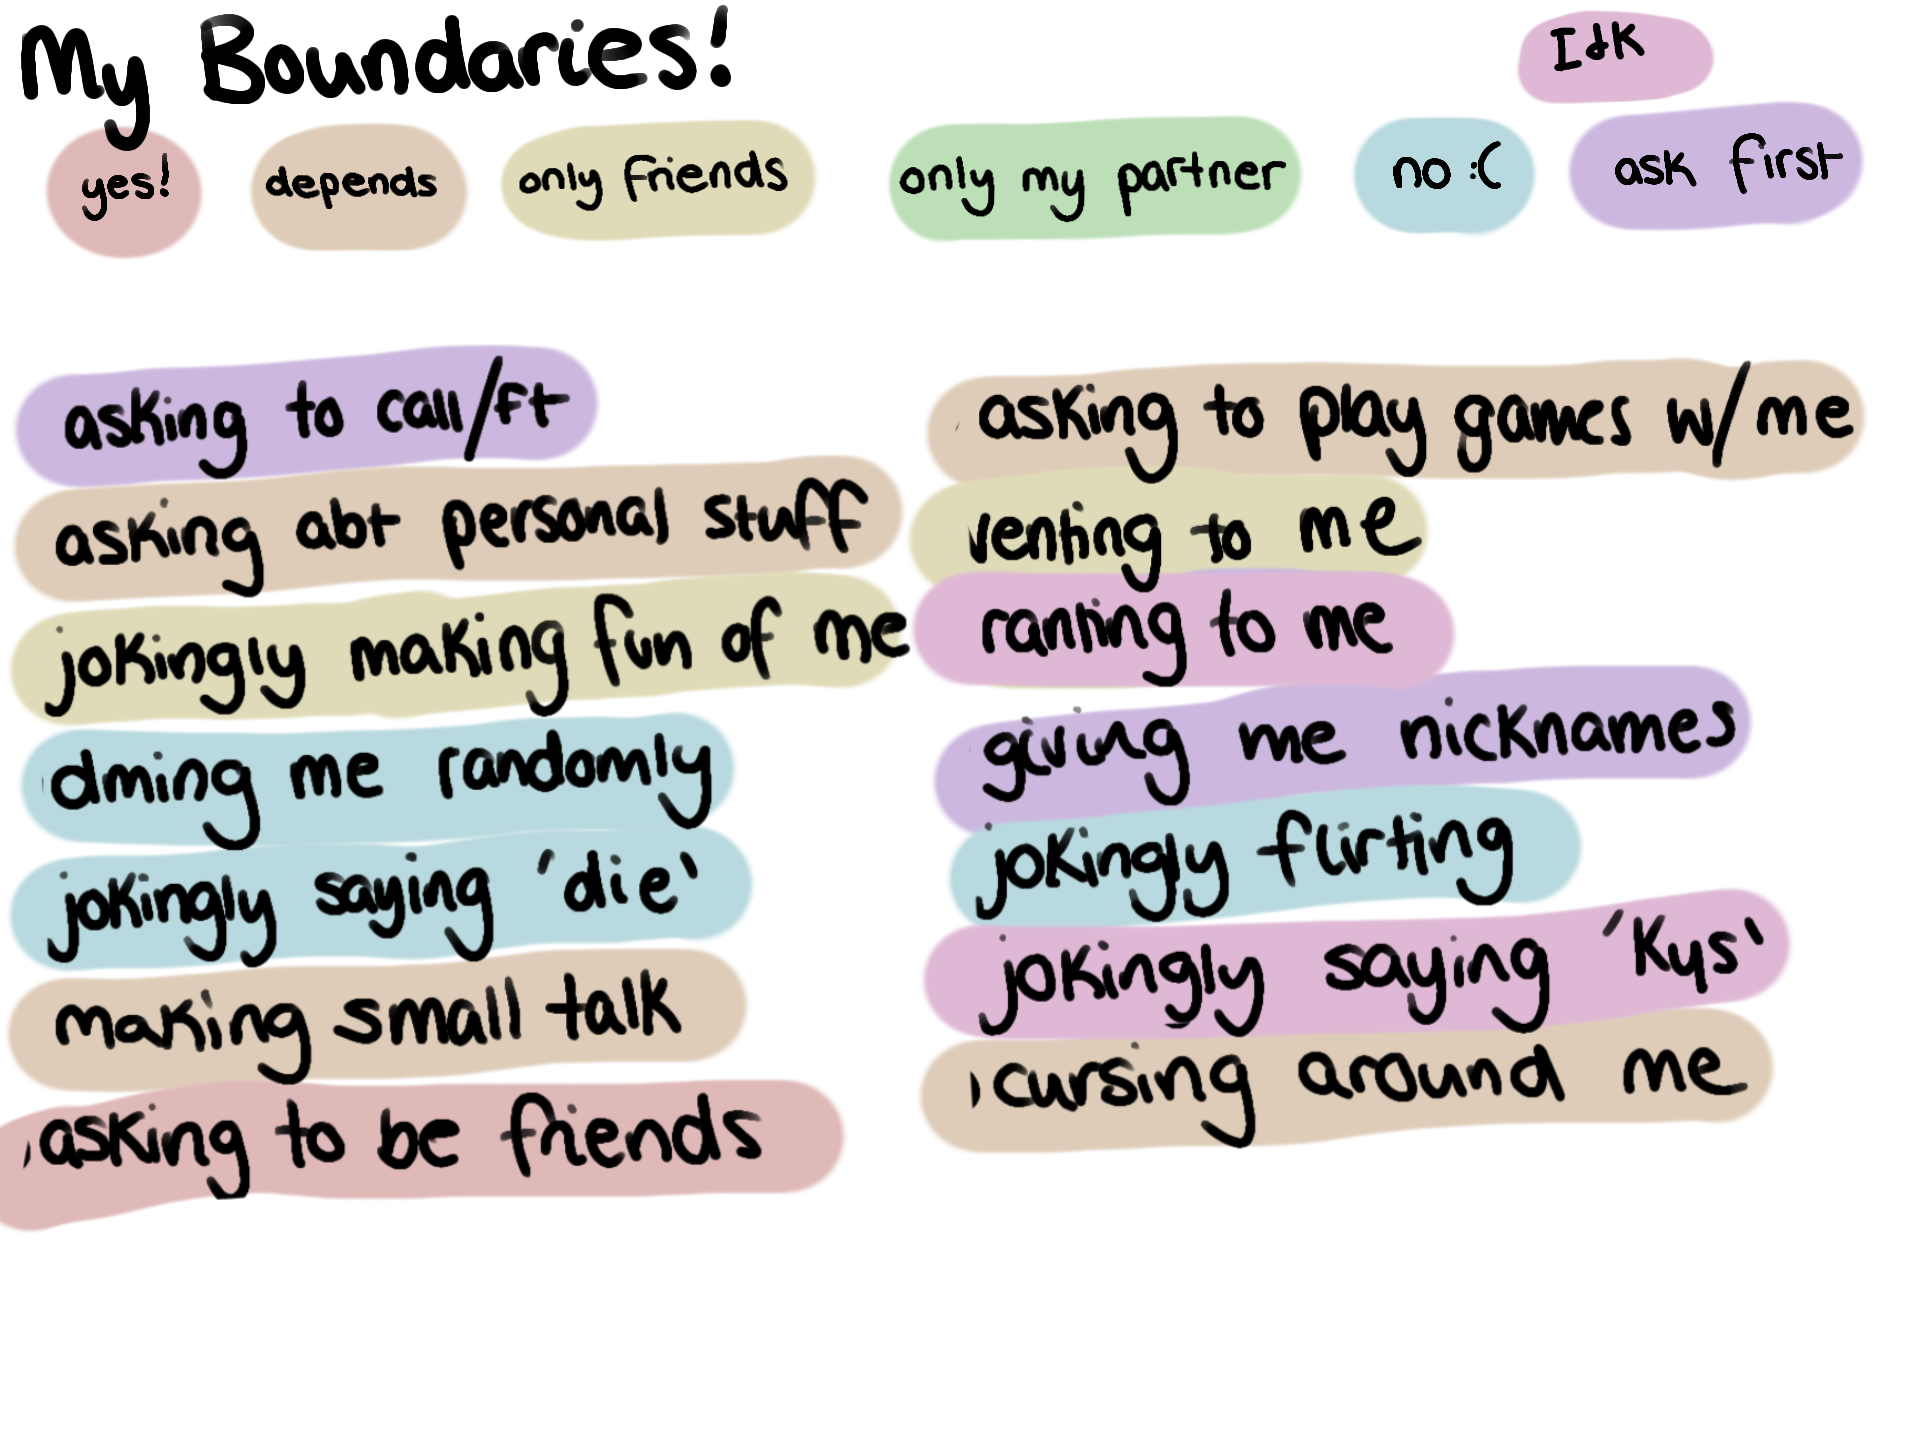 My Boundaries!
Idk
yes!
depends
only friends
only my partner
no :(
ask first
asking to call/ft
asking abt personal stuff
jokingly making fun of me
dming me randomly
jokingly saying 'die'
making small talk
asking to be friends
asking to play games w/me
venting to me
ranting to me
giving me nicknames
jokingly flirting
jokingly saying 'kys'
cursing around me